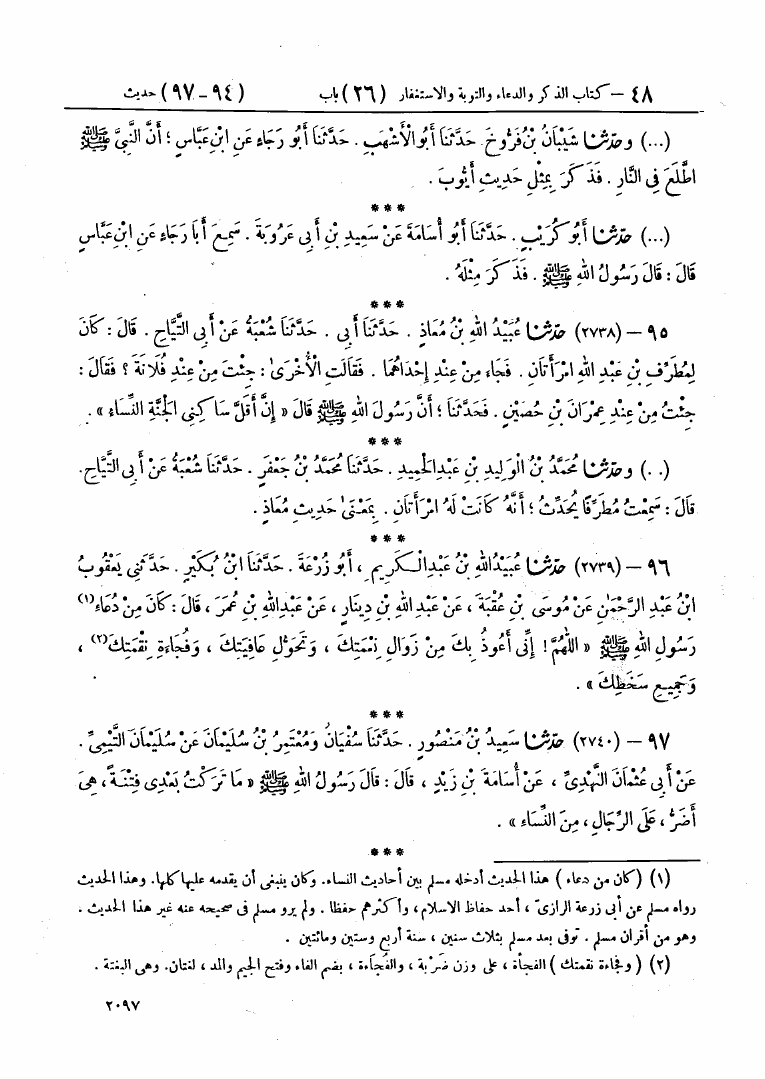 ٤٨ – كتاب الذكر والدعاء والتوبة والاستغفار (٢٦) باب (٩٤ - ٩٧) حديث
(...) وحَدَّثَنَا شَيْبَانُ بْنُ فَرُّوخَ. حَدَّثَنَا أَبُو الْأَشْهَبِ. حَدَّثَنَا أَبُو رَجَاءٍ عَنِ ابْنِ عَبَّاسٍ؛ أَنَّ النَّبِيَّ ﷺ
اطَّلَعَ فِي النَّارِ. فَذَكَرَ بِمِثْلِ حَدِيثِ أَيُّوبَ.
***
(...) حَدَّثَنَا أَبُو كُرَيْبٍ. حَدَّثَنَا أَبُو أُسَامَةَ عَنْ سَعِيدِ بْنِ أَبِي عَرُوبَةَ. سَمِعَ أَبَا رَجَاءٍ عَنِ ابْنِ عَبَّاسٍ
قَالَ: قَالَ رَسُولُ اللهِ ﷺ. فَذَكَرَ مِثْلَهُ.
***
٩٥ – (٢٧٣٨) حَدَّثَنَا عُبَيْدُ اللهِ بْنُ مُعَاذٍ. حَدَّثَنَا أَبِي. حَدَّثَنَا شُعْبَةُ عَنْ أَبِي التَّيَّاحِ. قَالَ: كَانَ
لِمُطَرِّفِ بْنِ عَبْدِ اللهِ امْرَأَتَانِ. فَجَاءَ مِنْ عِنْدِ إِحْدَاهُمَا. فَقَالَتِ الْأُخْرَىٰ: جِئْتَ مِنْ عِنْدِ فُلَانَةَ؟ فَقَالَ:
جِئْتُ مِنْ عِنْدِ عِمْرَانَ بْنِ حُصَيْنٍ. فَحَدَّثَنَا؛ أَنَّ رَسُولَ اللهِ ﷺ قَالَ « إِنَّ أَقَلَّ سَاكِنِي الْجَنَّةِ النِّسَاءُ ».
***
(..) وحَدَّثَنَا مُحَمَّدُ بْنُ الْوَلِيدِ بْنِ عَبْدِ الْحَمِيدِ. حَدَّثَنَا مُحَمَّدُ بْنُ جَعْفَرٍ. حَدَّثَنَا شُعْبَةُ عَنْ أَبِي التَّيَّاحِ.
قَالَ: سَمِعْتُ مُطَرِّفًا يُحَدِّثُ؛ أَنَّهُ كَانَتْ لَهُ امْرَأَتَانِ. بِمَعْنَىٰ حَدِيثِ مُعَاذٍ.
***
٩٦ – (٢٧٣٩) حَدَّثَنَا عُبَيْدُ اللهِ بْنُ عَبْدِ الْكَرِيمِ، أَبُو زُرْعَةَ. حَدَّثَنَا ابْنُ بُكَيْرٍ. حَدَّثَنِي يَعْقُوبُ
ابْنُ عَبْدِ الرَّحْمَٰنِ عَنْ مُوسَى بْنِ عُقْبَةَ، عَنْ عَبْدِ اللهِ بْنِ دِينَارٍ، عَنْ عَبْدِ اللهِ بْنِ عُمَرَ، قَالَ: كَانَ مِنْ دُعَاءِ(١)
رَسُولِ اللهِ ﷺ « اللَّهُمَّ! إِنِّي أَعُوذُ بِكَ مِنْ زَوَالِ نِعْمَتِكَ، وَتَحَوُّلِ عَافِيَتِكَ، وَفُجَاءَةِ نِقْمَتِكَ(٢)،
وَجَمِيعِ سَخَطِكَ ».
***
٩٧ – (٢٧٤٠) حَدَّثَنَا سَعِيدُ بْنُ مَنْصُورٍ. حَدَّثَنَا سُفْيَانُ وَمُعْتَمِرُ بْنُ سُلَيْمَانَ عَنْ سُلَيْمَانَ التَّيْمِيِّ.
عَنْ أَبِي عُثْمَانَ النَّهْدِيِّ، عَنْ أُسَامَةَ بْنِ زَيْدٍ، قَالَ: قَالَ رَسُولُ اللهِ ﷺ « مَا تَرَكْتُ بَعْدِي فِتْنَةً، هِيَ
أَضَرُّ، عَلَى الرِّجَالِ، مِنَ النِّسَاءِ ».
***
(١) (كان من دعاء) هذا الحديث أدخله مسلم بين أحاديث النساء. وكان ينبغي أن يقدمه عليها كلها. وهذا الحديث
رواه مسلم عن أبي زرعة الرازيّ، أحد حفاظ الاسلام، وأكثرهم حفظا. ولم يرو مسلم في صحيحه عنه غير هذا الحديث.
وهو من أقران مسلم. توفى بعد مسلم بثلاث سنين، سنة أربع وستين ومائتين.
(٢) (وفجاءة نقمتك) الفجأة، على وزن ضَرْبة، والفُجَاءة، بضم الفاء وفتح الجيم والمد، لغتان. وهى البغتة.
٢٠٩٧